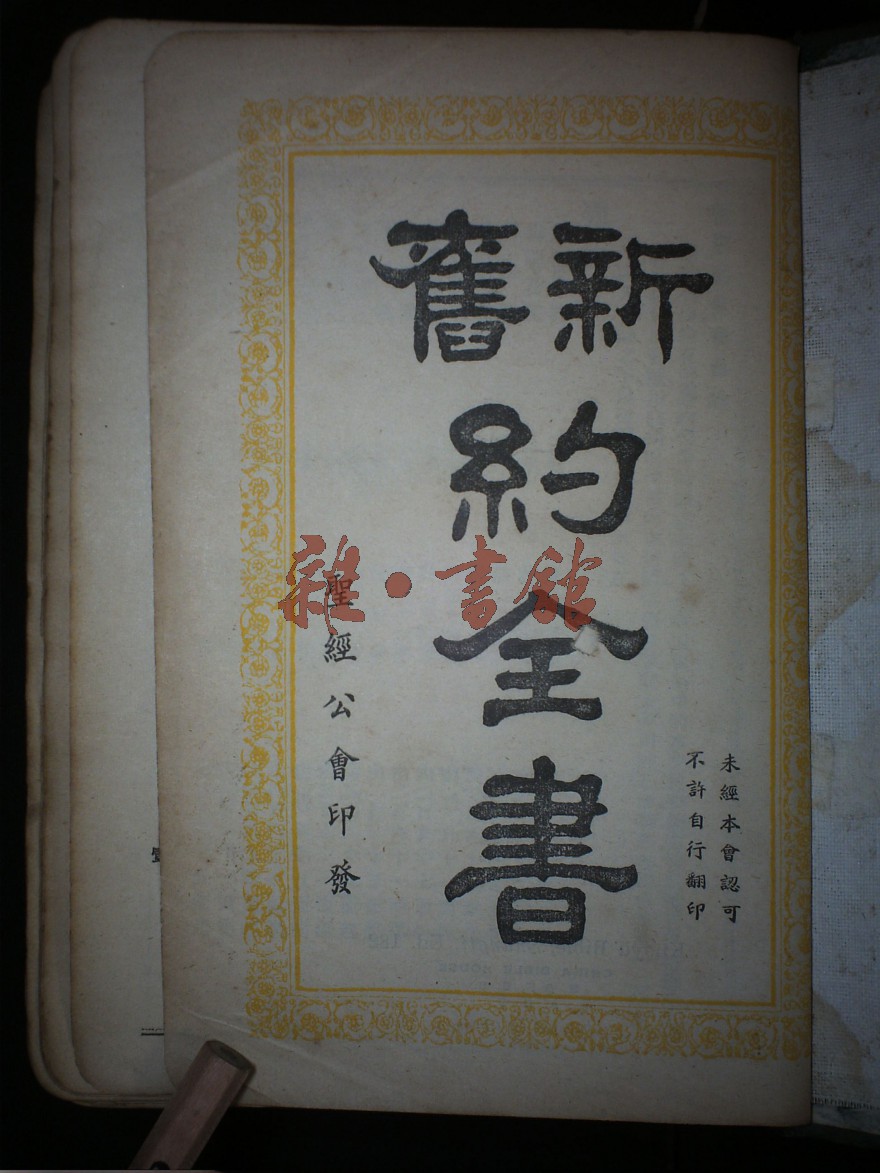 新舊
約全書
未經本會認可
不許自行翻印
聖經公會印發
雜·書館